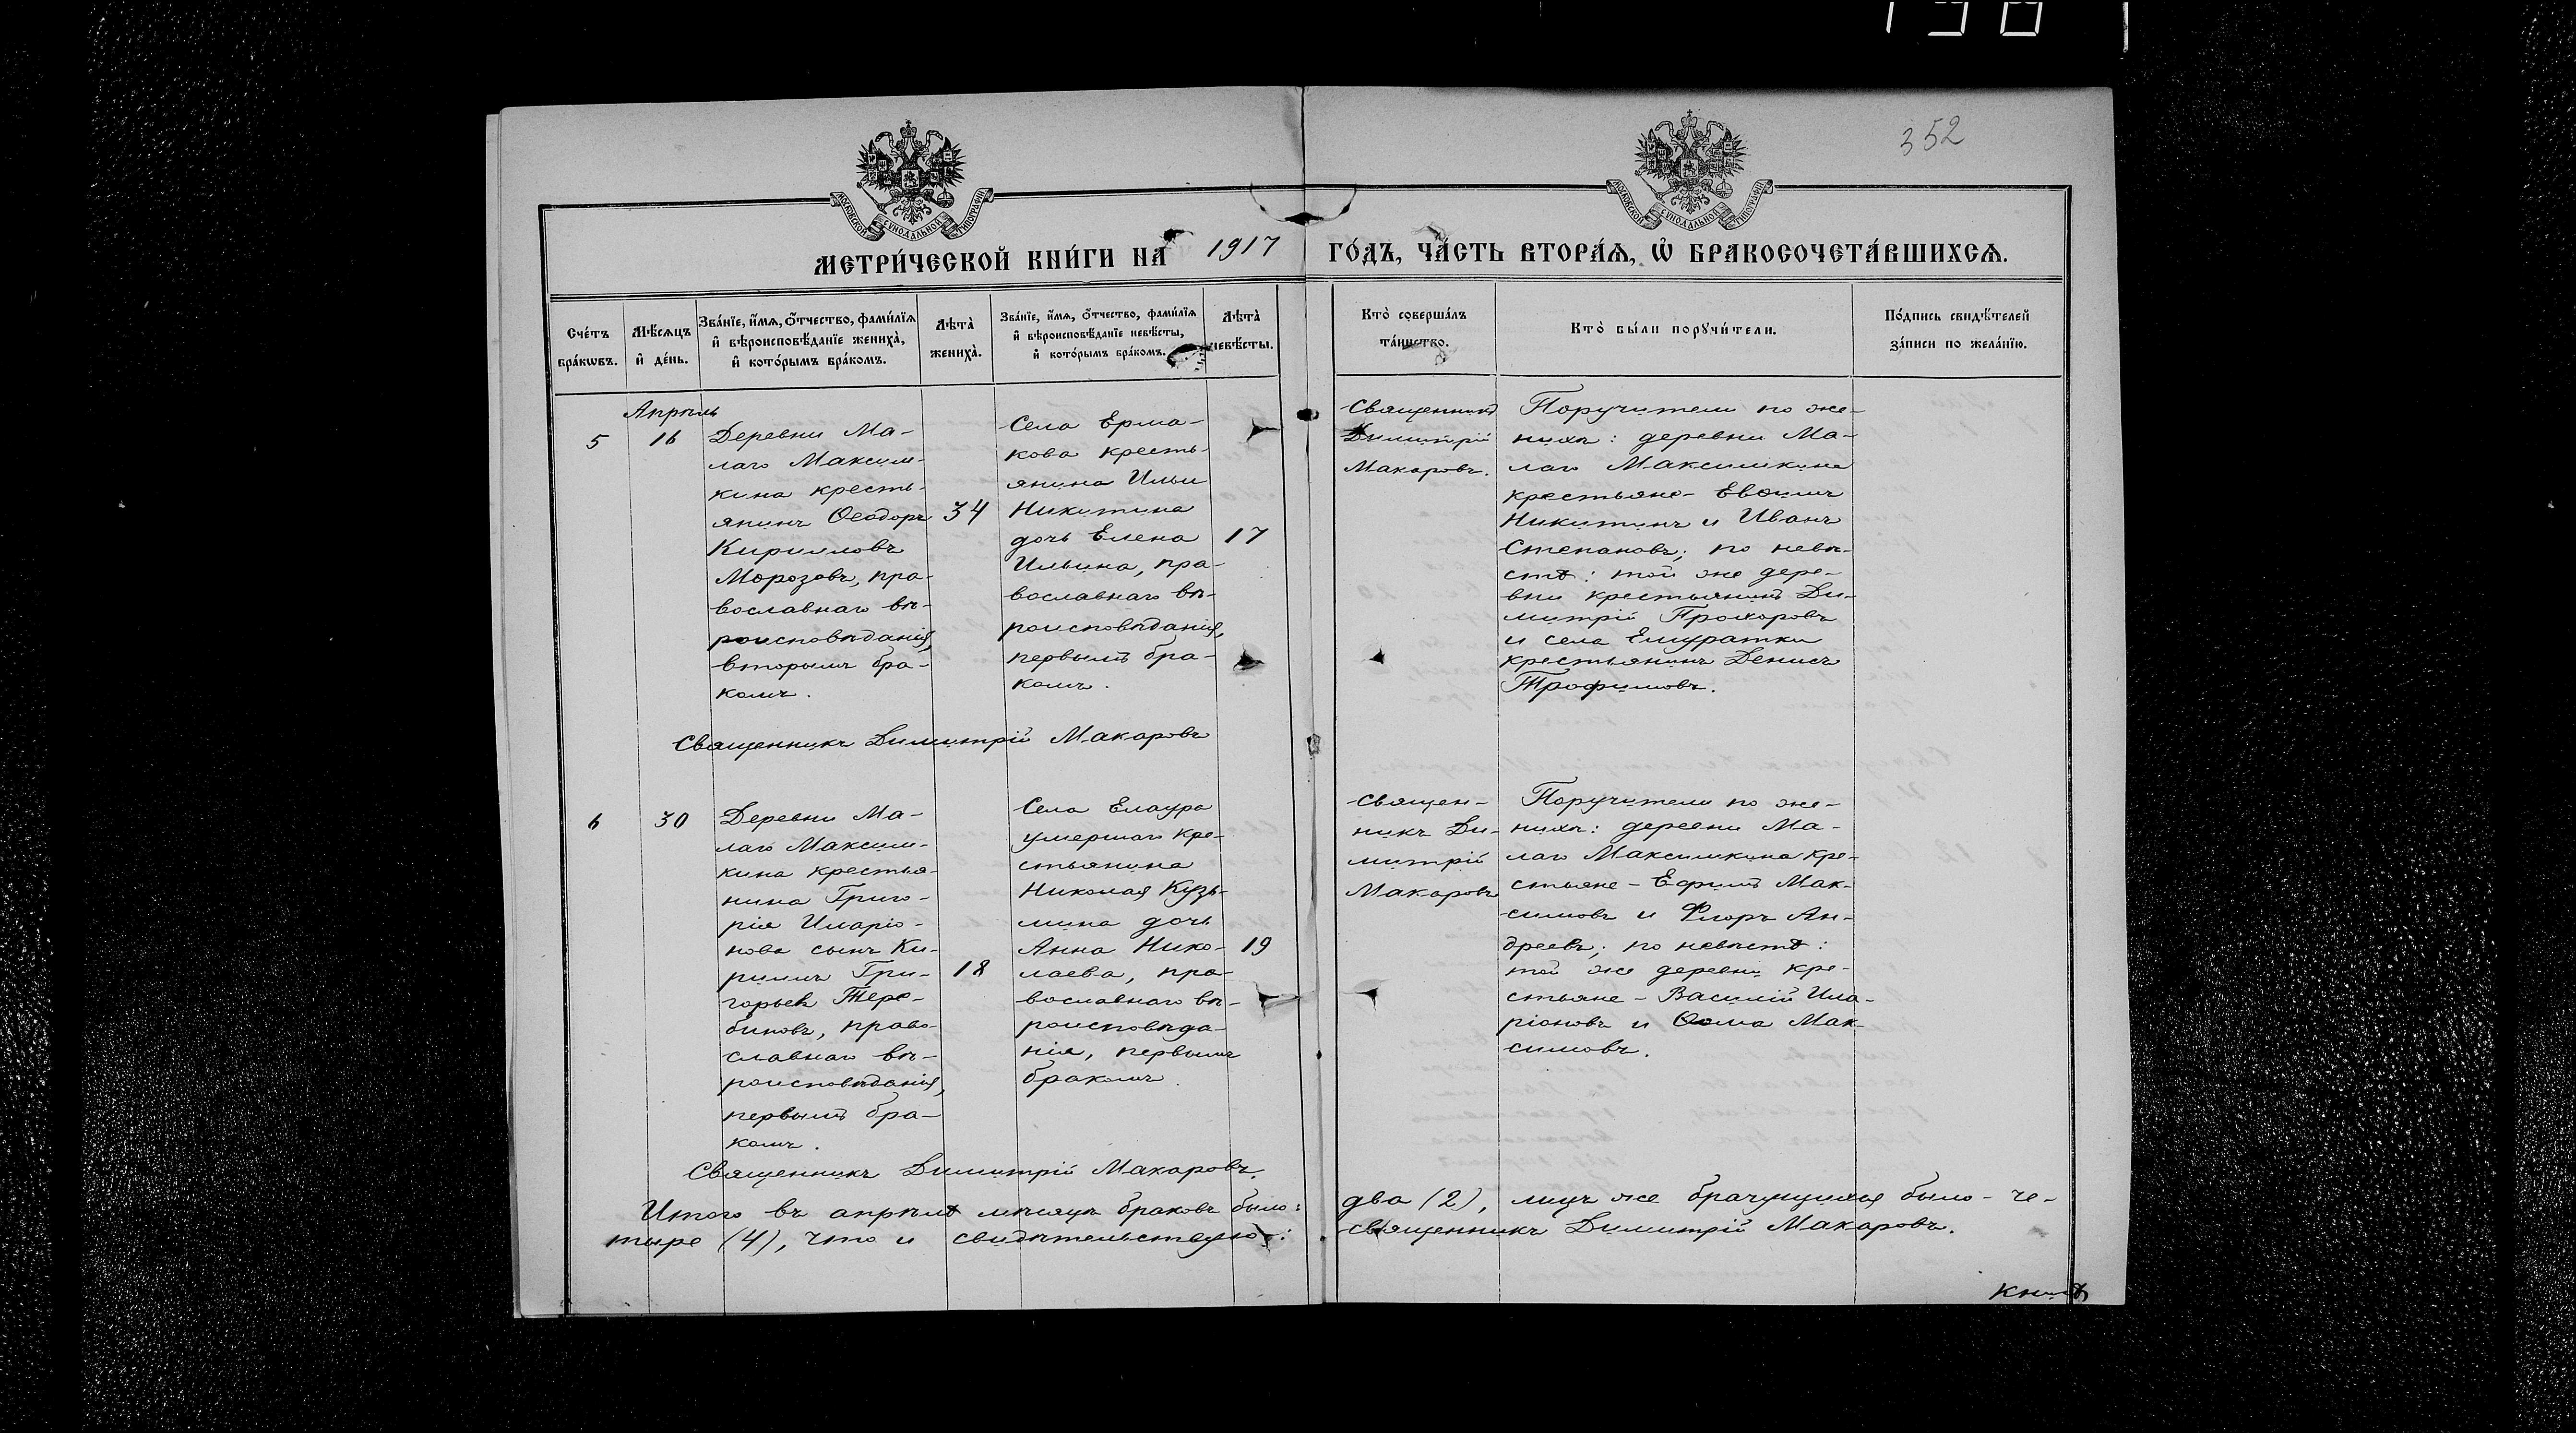 352
МОСКОВСКОЙ СУНОДАЛЬНОЙ ТИПОГРАФІИ
МОСКОВСКОЙ СУНОДАЛЬНОЙ ТИПОГРАФІИ
МЕТРИ́ЧЕСКОЙ КНИ́ГИ НА 1917 ГО́ДЪ, ЧА́СТЬ ВТОРА́Ѧ, Ѡ҆ БРАКОСОЧЕТА́ВШИХСѦ.
Сче́тъ
бра́кѡвъ.
Мѣ́сѧцъ
и҆ де́нь.
Зва́нїе, и҆́мѧ, ѻ҆́тчество, фами́лїѧ
и҆ вѣроисповѣ́данїе жениха̀,
и҆ кото́рымъ бра́комъ.
Лѣта̀
жениха̀.
Зва́нїе, и҆́мѧ, ѻ҆́тчество, фами́лїѧ
и҆ вѣроисповѣ́данїе невѣ́сты,
и҆ кото́рымъ бра́комъ.
Лѣта̀
невѣ́сты.
Кто̀ соверша́лъ
та́инство.
Кто̀ бы́ли порꙋчи́тели.
По́дпись свидѣ́телей
за́писи по жела́нїю.
Апрѣль
5
16
Деревни Ма-
лаго Максим-
кина кресть-
янинъ Ѳеодоръ
Кирилловъ
Морозовъ, пра-
вославнаго вѣ-
роисповѣданія,
вторымъ бра-
комъ.
34
Села Ерма-
кова кресть-
янина Ильи
Никитина
дочь Елена
Ильина, пра-
вославнаго вѣ-
роисповѣданія,
первымъ бра-
комъ.
17
Священникъ
Димитрій
Макаровъ.
Поручители по же-
нихѣ: деревни Ма-
лаго Максимкина
крестьяне - Евѳимъ
Никитинъ и Иванъ
Степановъ; по невѣ-
стѣ: той же дере-
вни крестьянинъ Ди-
митрій Прохоровъ
и села Емуратки
крестьянинъ Денисъ
Трофимовъ.
Священникъ Димитрій Макаровъ
6
30
Деревни Ма-
лаго Максим-
кина крестья-
нина Григо-
рія Иларіо-
нова сынъ Ки-
риллъ Гри-
горьевъ Тере-
биновъ, право-
славнаго вѣ-
роисповѣданія,
первымъ бра-
комъ.
18
Села Елаура
умершаго кре-
стьянина
Николая Кузь-
мина дочь
Анна Нико-
лаева, пра-
вославнаго вѣ-
роисповѣда-
нія, первымъ
бракомъ.
19
Священ-
никъ Ди-
митрій
Макаровъ
Поручители по же-
нихѣ: деревни Ма-
лаго Максимкина кре-
стьяне - Ефимъ Мак-
симовъ и Флоръ Ан-
дреевъ; по невѣстѣ:
той же деревни кре-
стьяне - Василій Ила-
ріоновъ и Ѳома Мак-
симовъ.
Священникъ Димитрій Макаровъ.
Итого въ апрѣлѣ мѣсяцѣ браковъ было: два (2), лицъ же брачущихся было - че-
тыре (4), что и свидѣтельствую: священникъ Димитрій Макаровъ.